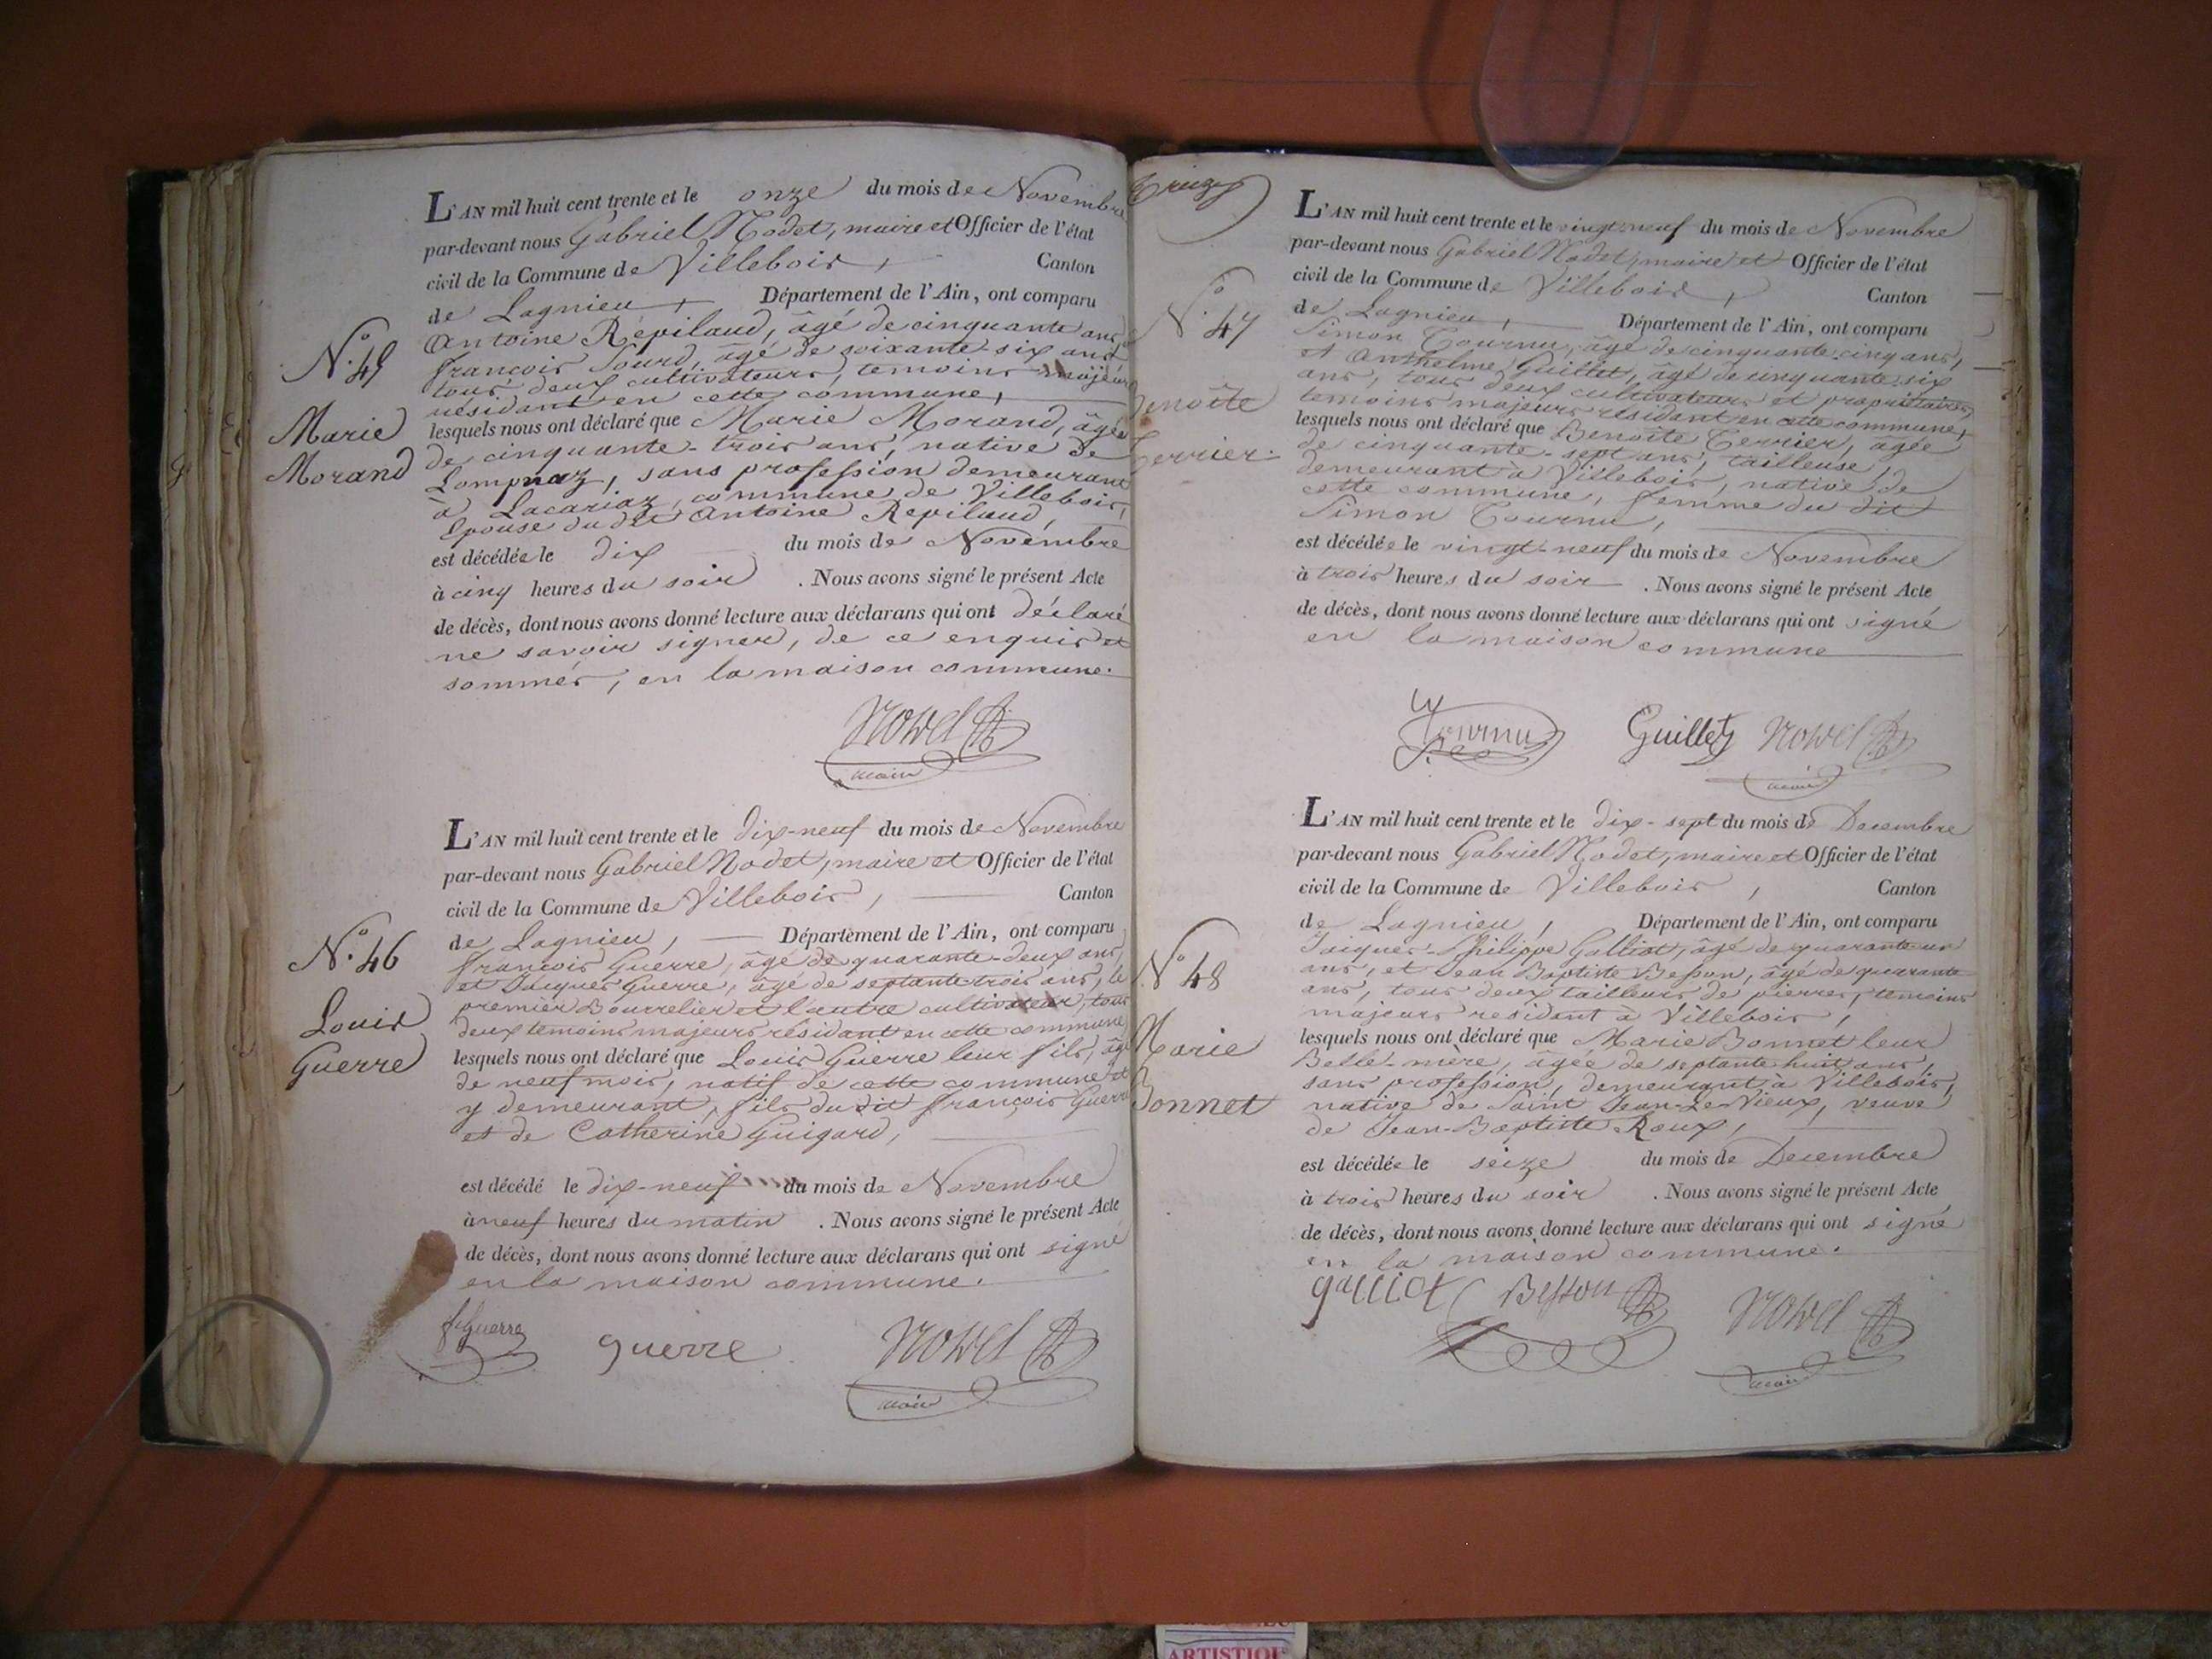 L'AN mil huit cent trente et le onze du mois de Novembre
par-devant nous Gabriel Nodet, maire et Officier de l'état
civil de la Commune de Villebois, Canton
de Lagnieu, Département de l'Ain, ont comparu
Antoine Répilaud, âgé de cinquante ans,
françois Sourd, âgé de soixante-six ans
tous deux cultivateurs, temoins majeurs
résidant en cette commune,
N.o 45
Marie
Morand
lesquels nous ont déclaré que Marie Morand, âgée
de cinquante-trois ans, native de
Lompnaz, sans profession demeurant
à Lacariaz, commune de Villebois,
Epouse du dit Antoine Répilaud,
est décédée le dix du mois de Novembre
à cinq heures du soir . Nous avons signé le présent Acte
de décès, dont nous avons donné lecture aux déclarans qui ont déclaré
ne savoir signer, de ce enquis et
sommés, en la maison commune.
Nodet
maire
L'AN mil huit cent trente et le dix-neuf du mois de Novembre
par-devant nous Gabriel Nodet, maire et Officier de l'état
civil de la Commune de Villebois, Canton
de Lagnieu, Département de l'Ain, ont comparu
françois Guerre, âgé de quarante-deux ans,
et Jacques Guerre, âgé de septante trois ans, le
premier Bourrelier et l'autre cultivateur, tous
deux temoins majeurs résidant en cette commune
N.o 46
Louis
Guerre
lesquels nous ont déclaré que Louis Guerre leur fils, âgé
de neuf mois, natif de cette commune et
y demeurant, fils du dit françois Guerre
et de Catherine Guigard,
est décédé le dix-neuf du mois de Novembre
à neuf heures du matin . Nous avons signé le présent Acte
de décès, dont nous avons donné lecture aux déclarans qui ont signé
en la maison commune.
fs Guerre guerre Nodet
maire
Treize
L'AN mil huit cent trente et le vingt-neuf du mois de Novembre
par-devant nous Gabriel Nodet, maire et Officier de l'état
civil de la Commune de Villebois, Canton
de Lagnieu, Département de l'Ain, ont comparu
Simon Tournu, âgé de cinquante-cinq ans,
et Anthelme Guillet, âgé de cinquante six
ans, tous deux cultivateurs et propriétaires
temoins majeurs résidant en cette commune,
N.o 47
Benoîte
Terrier
lesquels nous ont déclaré que Benoîte Terrier, âgée
de cinquante-sept ans, tailleuse,
demeurant à Villebois, native de
cette commune, femme du dit
Simon Tournu,
est décédée le vingt-neuf du mois de Novembre
à trois heures du soir . Nous avons signé le présent Acte
de décès, dont nous avons donné lecture aux déclarans qui ont signé
en la maison commune
Tournu Guillet Nodet
maire
L'AN mil huit cent trente et le dix-sept du mois de Decembre
par-devant nous Gabriel Nodet, maire et Officier de l'état
civil de la Commune de Villebois, Canton
de Lagnieu, Département de l'Ain, ont comparu
Jaiques-Philippe Galliot, âgé de quarante-un
ans, et Jean Baptiste Besson, âgé de quarante
ans, tous deux tailleurs de pierres, temoins
majeurs residant à Villebois,
N.o 48
Marie
Bonnet
lesquels nous ont déclaré que Marie Bonnet leur
Belle-mère, âgée de septante huit ans,
sans profession, demeurant à Villebois,
native de Saint Jean-Le-Vieux, veuve
de Jean-Baptiste Roux,
est décédée le seize du mois de Decembre
à trois heures du soir . Nous avons signé le présent Acte
de décès, dont nous avons donné lecture aux déclarans qui ont signé
en la maison commune.
galliot Besson Nodet
maire
ARTISTIQUE